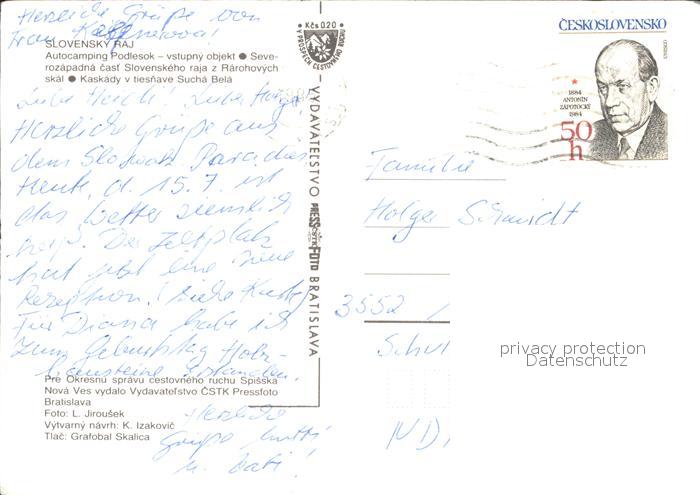 Herzliche Grüße von
Frau
SLOVENSKÝ RAJ
Autocamping Podlesok – vstupný objekt ● Seve-
rozápadná časť Slovenského raja z Rárohových
skál ● Kaskády v tiesňave Suchá Belá
Kčs 0,20
V PROSPECH CESTOVNÉHO RUCHU
ČESKOSLOVENSKO
1884
ANTONÍN
ZÁPOTOCKÝ
1984
50
h
Liebe
Herzliche Grüße aus
dem Slowak. Paradies.
Heute, d. 15.7. ist
das Wetter ziemlich
Der Zeltplatz
hat jetzt eine neue
Rezeption! Siehe Karte
Für Diana habe ich
zum Geburtstag Holz-
VYDAVATEĽSTVO PRESSFOTO BRATISLAVA
ČSTK
Familie
Holger Schmidt
3552
privacy protection
Datenschutz
Pre Okresnú správu cestovného ruchu Spišská
Nová Ves vydalo Vydavateľstvo ČSTK Pressfoto
Bratislava
Foto: L. Jiroušek
Výtvarný návrh: K. Izakovič
Tlač: Grafobal Skalica
Herzliche
Grüße Mutti
u. Vati!